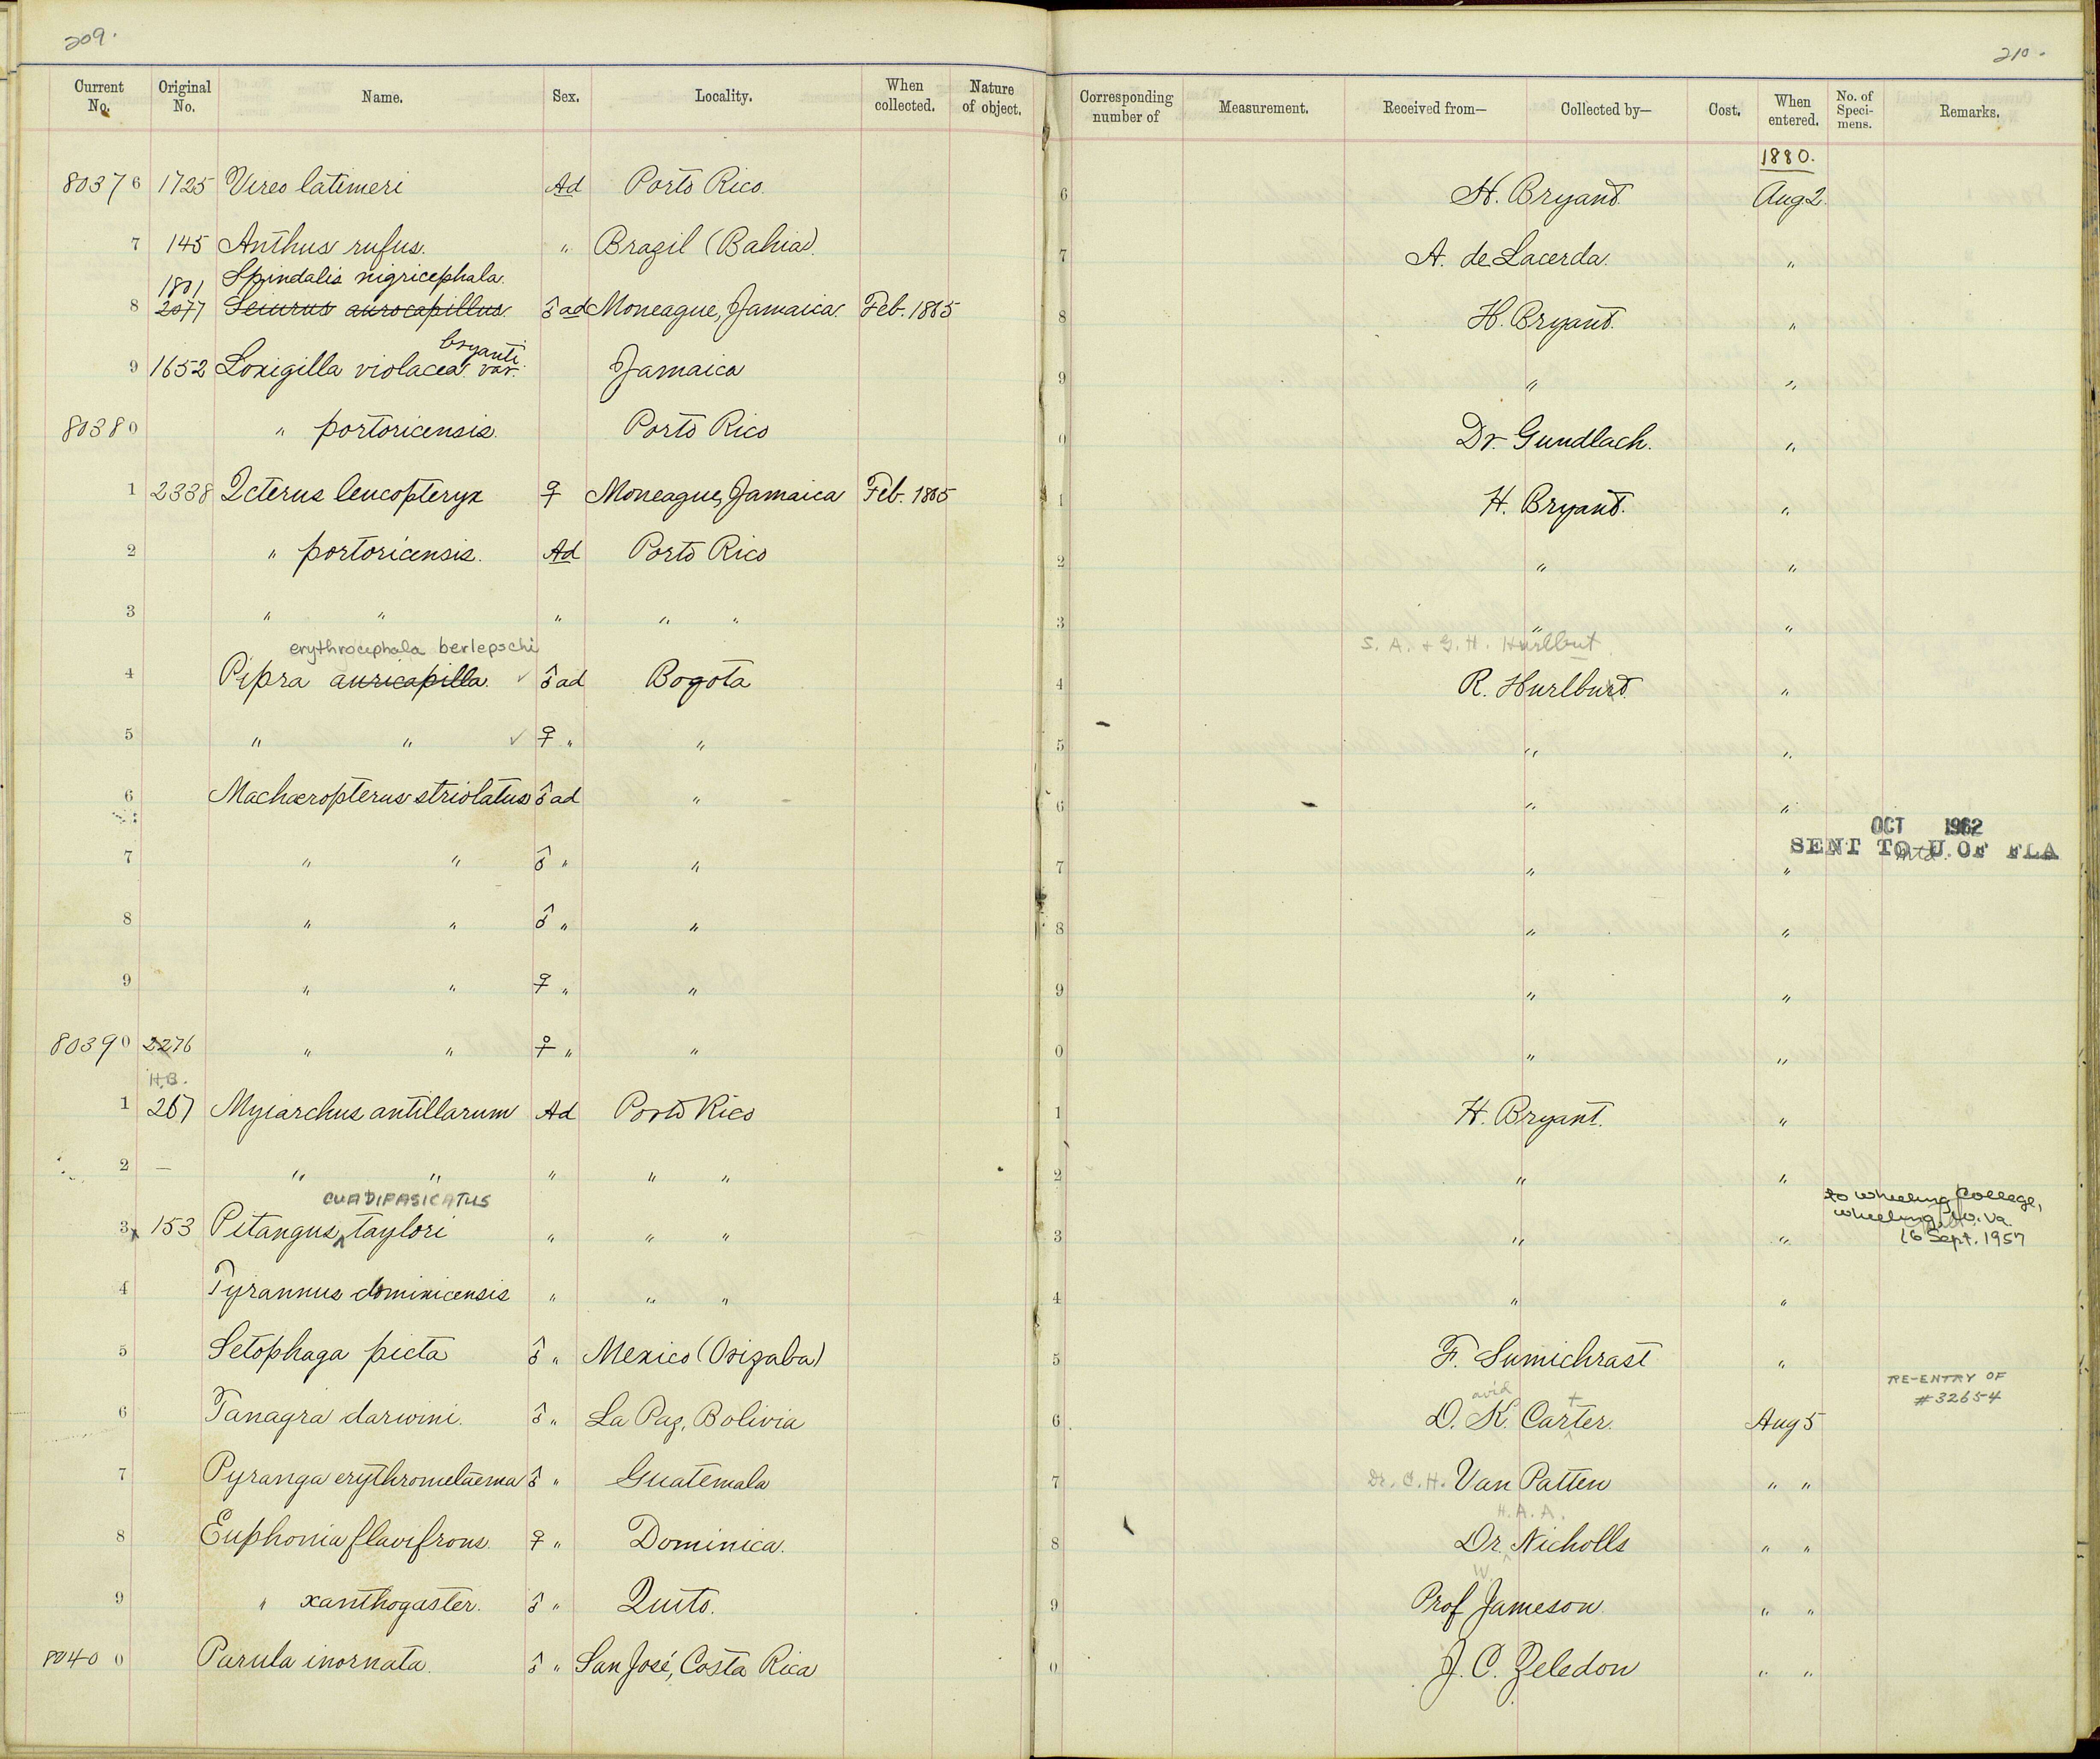 209.
210.
Current No. Original No. Name. Sex. Locality. When collected. Nature of object. Corresponding number of Measurement. Received from— Collected by— Cost. When entered. No. of Speci-mens. Remarks.
1880.
80376 1725 Vireo latimeri Ad Porto Rico. 6 H. Bryant. Aug 2.
7 145 Anthus rufus. " Brazil (Bahia). 7 A. de Lacerda. "
1801 Spindalis nigricephala.
8 2077 Seiurus aurocapillus. ♂ ad Moneague, Jamaica. Feb. 1865 8 H. Bryant. "
bryanti
9 1652 Loxigilla violacea. var. Jamaica 9 " "
80380 " portoricensis. Porto Rico 0 Dr. Gundlach. "
1 2338 Icterus leucopteryx ♀ Moneague, Jamaica Feb. 1865 1 H. Bryant. "
2 " portoricensis. Ad Porto Rico 2 " "
3 " " " " " 3 " "
erythrocephala berlepschi S. A. + G. H. Hurlbut.
4 Pipra auricapilla. ✓ ♂ ad Bogota 4 R. Hurlburt. "
5 " " ✓ ♀ " " 5 " "
6 Machæropterus striolatus ♂ ad " 6 " "
OCT 1962
SENT TO U OF FLA
7 " " ♂ " " 7 " "
8 " " ♂ " " 8 " "
9 " " ♀ " " 9 " "
80390 2276 " " ♀ " " 0 " "
H.B.
1 267 Myiarchus antillarum Ad Porto Rico 1 H. Bryant. "
2 — " " " " " 2 " "
CUADIFASICATUS
to Wheeling College,
Wheeling, W. Va.
16 Sept. 1957
3 x 153 Pitangus ^ taylori " " " 3 " "
4 Tyrannus dominicensis " " " 4 " "
5 Setophaga picta ♂ " Mexico (Orizaba) 5 F. Sumichrast "
avid t RE-ENTRY OF
#32654
6 Tanagra darwini. ♂ " La Paz, Bolivia 6 D. K. Carter. Aug 5
7 Pyranga erythromelaena ♂ " Guatemala 7 Dr. C. H. Van Patten " "
H. A. A.
8 Euphonia flavifrons. ♀ " Dominica. 8 Dr. ^ Nicholls " "
W.
9 " xanthogaster. ♂ " Quito. 9 Prof Jameson. " "
80400 Parula inornata. ♂ " San José, Costa Rica 0 J. C. Zeledon " "